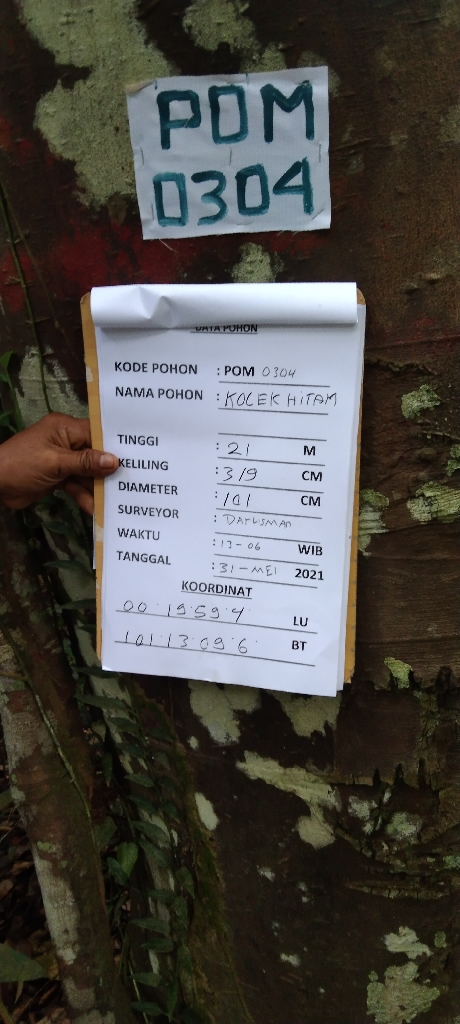 POM
0304
DATA POHON
KODE POHON : POM 0304
NAMA POHON : KOLEK HITAM
TINGGI : 21 M
KELILING : 319 CM
DIAMETER : 101 CM
SURVEYOR : DARUSMAN
WAKTU : 13-06 WIB
TANGGAL : 31-MEI 2021
KOORDINAT
00:19:59:4 LU
101:13:09:6 BT